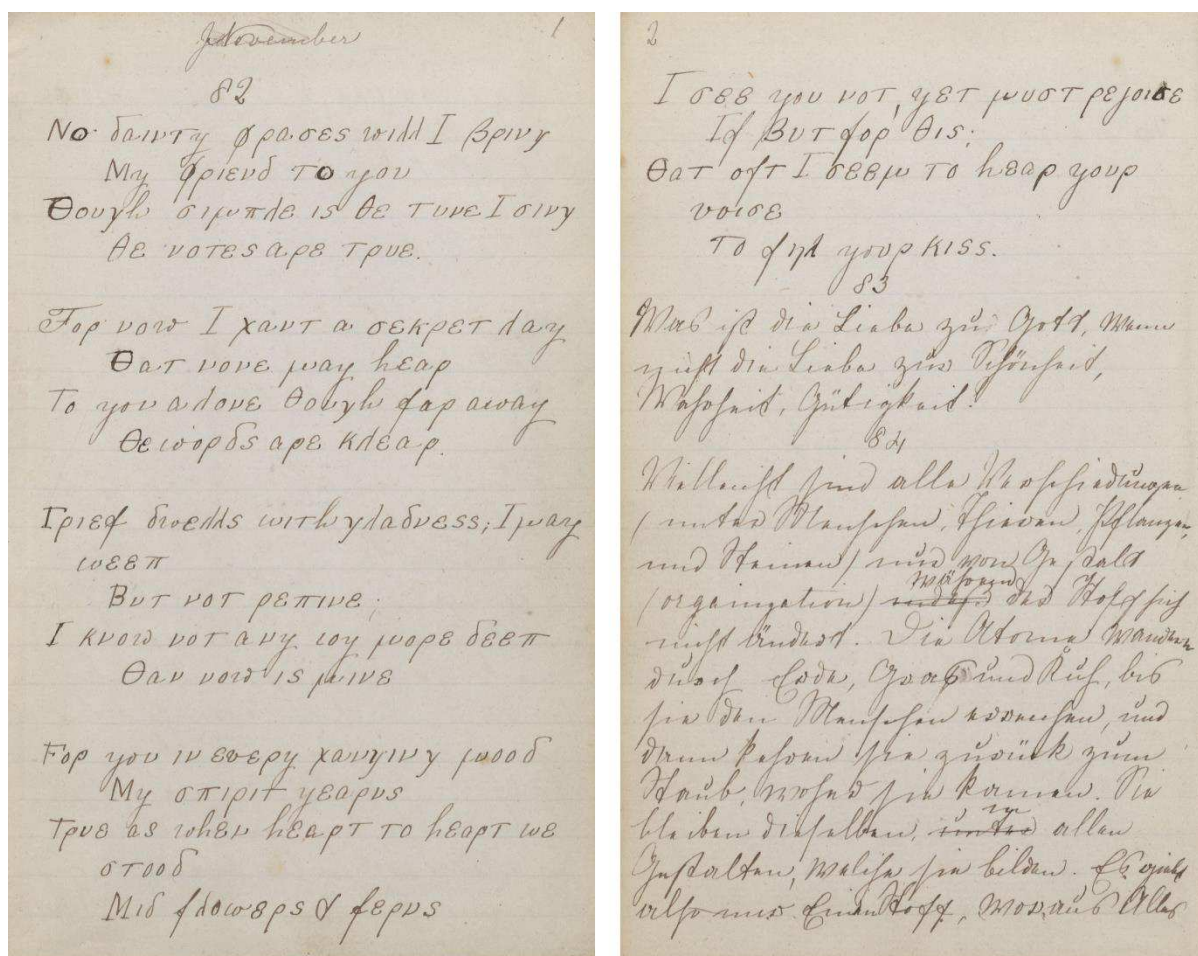 November
1
82
Νο δαιντy φρασες ωιλλ I βρινγ
My φριενδ το yου
Θουγh σιμπλε ις θε τυνε I σινγ
θε νοτες αρε τρυε.
Fορ νοω I χαντ α σεκρετ λαy
Θατ νονε μαy hεαρ
Το yου αλονε θουγh φαρ αωαy
Θε ωορδς αρε κλεαρ.
Γριεφ δωελλς ωιτh γλαδνεσς; I μαy
ωεεπ
Βυτ νοτ ρεπινε;
I κνοω νοτ ανy ιοy μορε δεεπ
Θαν νοω ις μινε
Fορ yου ιν εvερy χανγινγ μοοδ
My σπιριτ yεαρνς
Τρυε ας ωhεν hεαρτ το hεαρτ ωε
στοοδ
Μιδ φλοωερς & φερνς
2
I σεε yου νοτ, yετ μυστ ρεjοισε
Iφ βυτ φορ θις;
Θατ οφτ I σεεμ το hεαρ yουρ
vοισε
Το φηλ yουρ κισς.
83
Was ist die Liebe zu Gott, wenn
nicht die Liebe zur Schönheit,
Wahrheit, Gütigkeit!
84
Vielleicht sind alle Verschiedungen
(unter Menschen, Thieren, Pflanzen,
und Steinen) nur von Gestalt
(organization) während der Stoff sich
nicht ändert. Die Atome wandern
durch Erde, Gras und Kuh, bis
sie den Menschen erreichen, und
dann kehren sie zurück zum
Staub, woher sie kamen. Sie
bleiben dieselben, unter in allen
Gestalten, welche sie bilden. Es giebt
also nur Einen Stoff, woraus Alles